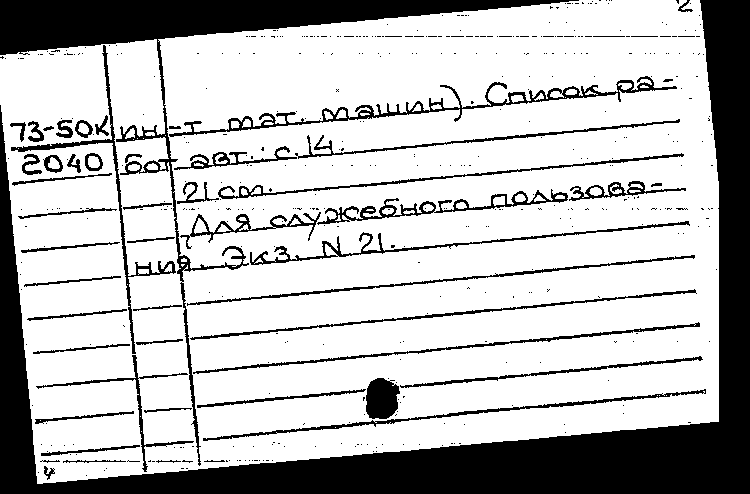 2
73-50К ин-т мат. машин). Список ра-
2040 бот авт.: с. 14.
21 см.
Для служебного пользова-
ния. Экз. N 21.
4